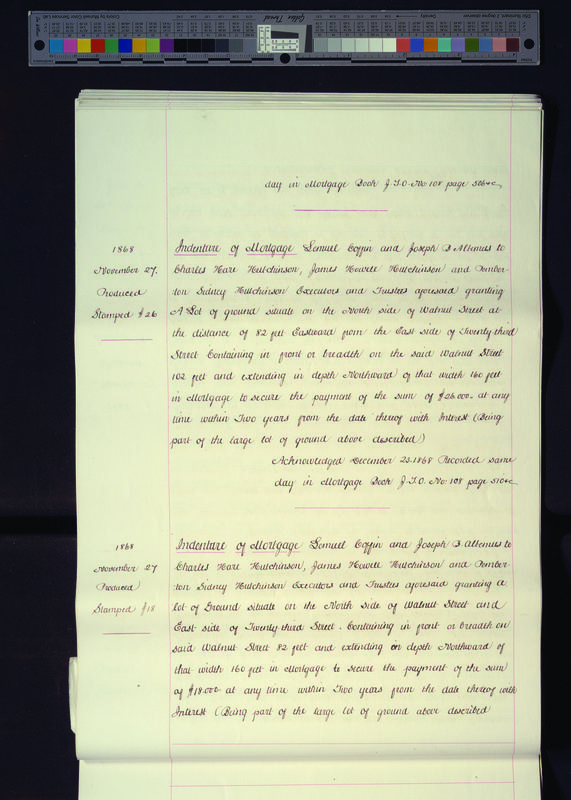 day in Mortgage Book J.T.O. No 108 page 506 &c
1868
November 27.
Produced
Stamped $26
Indenture of Mortgage Lemuel Coffin and Joseph B. Altemus to
Charles Hare Hutchinson, James Howell Hutchinson and Pember-
ton Sidney Hutchinson Executors and Trustees aforesaid granting
A Lot of ground situate on the North side of Walnut Street at
the distance of 82 feet Eastward from the East side of Twenty-third
Street Containing in front or breadth on the said Walnut Street
102 feet and extending in depth Northward of that width 160 feet
in Mortgage to secure the payment of the sum of $26.000 at any
time within Two years from the date thereof with Interest (Being
part of the large lot of ground above described)
Acknowledged December 23. 1868 Recorded same
day in Mortgage Book J.T.O. No. 108 page 510 &c
1868
November 27
Produced
Stamped $18
Indenture of Mortgage Lemuel Coffin and Joseph B. Altemus to
Charles Hare Hutchinson, James Howell Hutchinson and Pember-
ton Sidney Hutchinson Executors and Trustees aforesaid granting a
lot of Ground situate on the North side of Walnut Street and
East side of Twenty third Street. Containing in front or breadth on
said Walnut Street 82 feet and extending in depth Northward of
that width 160 feet in Mortgage to secure the payment of the sum
of $18.000 at any time within Two years from the date thereof with
Interest (Being part of the large lot of ground above described